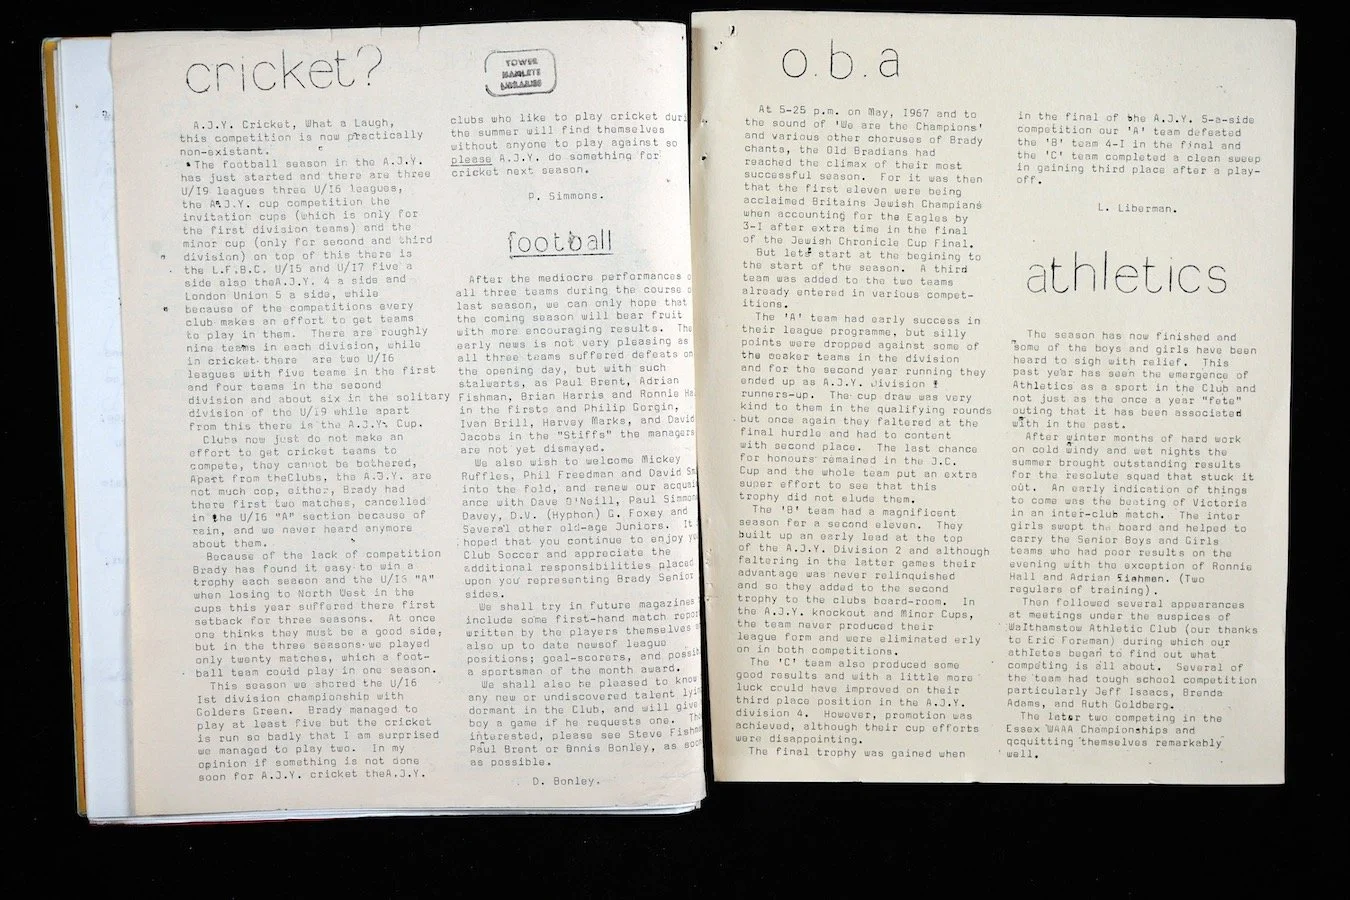 cricket?
A.J.Y. Cricket, What a Laugh,
this competition is now practically
non-existant.
The football season in the A.J.Y.
has just started and there are three
U/I9 leagues three U/I6 leagues,
the A.J.Y. cup competition the
invitation cups (which is only for
the first division teams) and the
minor cup (only for second and third
division) on top of this there is
the L.F.B.C. U/I5 and U/I7 five a
side also theA.J.Y. 4 a side and
London Union 5 a side, while
because of the competitions every
club makes an effort to get teams
to play in them. There are roughly
nine teams in each division, while
in cricket there are two U/I6
leagues with five teams in the first
and four teams in the second
division and about six in the solitary
division of the U/i9 while apart
from this there is the A.J.Y. Cup.
Clubs now just do not make an
effort to get cricket teams to
compete, they cannot be bothered,
Apart from theClubs, the A.J.Y. are
not much cop, either, Brady had
there first two matches, cancelled
in the U/I6 "A" section because of
rain, and we never heard anymore
about them.
Because of the lack of competition
Brady has found it easy to win a
trophy each season and the U/I6 "A"
when losing to North West in the
cups this year suffered there first
setback for three seasons. At once
one thinks they must be a good side,
but in the three seasons we played
only twenty matches, which a foot-
ball team could play in one season.
This season we shared the U/I6
Ist division championship with
Golders Green. Brady managed to
play at least five but the cricket
is run so badly that I am surprised
we managed to play two. In my
opinion if something is not done
soon for A.J.Y. cricket theA.J.Y.
TOWER
HAMLETS
LIBRARIES
clubs who like to play cricket duri
the summer will find themselves
without anyone to play against so
please A.J.Y. do something for
cricket next season.
P. Simmons.
football
After the mediocre performances o
all three teams during the course o
last season, we can only hope that
the coming season will bear fruit
with more encouraging results. The
early news is not very pleasing as
all three teams suffered defeats on
the opening day, but with such
stalwarts, as Paul Brent, Adrian
Fishman, Brian Harris and Ronnie Ha
in the firsts and Philip Gorgin,
Ivan Brill, Harvey Marks, and David
Jacobs in the "Stiffs" the managers
are not yet dismayed.
We also wish to welcome Mickey
Ruffles, Phil Freedman and David Sm
into the fold, and renew our acquai
ance with Dave O'Neill, Paul Simmon
Davey, D.V. (Hyphon) G. Foxey and
Several other old-age Juniors. It
hoped that you continue to enjoy yo
Club Soccer and appreciate the
additional responsibilities placed
upon you representing Brady Senior
sides.
We shall try in future magazines
include some first-hand match repor
written by the players themselves a
also up to date newsof league
positions; goal-scorers, and possib
a sportsman of the month award.
We shall also be pleased to know
any new or undiscovered talent lyin
dormant in the Club, and will give
boy a game if he requests one. Tho
interested, please see Steve Fishm
Paul Brent or Dnnis Bonley, as soo
as possible.
D. Bonley.
o.b.a
At 5-25 p.m. on May, I967 and to
the sound of 'We are the Champions'
and various other choruses of Brady
chants, the Old Bradians had
reached the climax of their most
successful season. For it was then
that the first eleven were being
acclaimed Britains Jewish Champians
when accounting for the Eagles by
3-I after extra time in the final
of the Jewish Chronicle Cup Final.
But lets start at the begining to
the start of the season. A third
team was added to the two teams
already entered in various compet-
itions.
The 'A' team had early success in
their league programme, but silly
points were dropped against some of
the weaker teams in the division
and for the second year running they
ended up as A.J.Y. Division I
runners-up. The cup draw was very
kind to them in the qualifying rounds
but once again they faltered at the
final hurdle and had to content
with second place. The last chance
for honours remained in the J.C.
Cup and the whole team put an extra
super effort to see that this
trophy did not elude them.
The 'B' team had a magnificent
season for a second eleven. They
built up an early lead at the top
of the A.J.Y. Division 2 and although
faltering in the latter games their
advantage was never relinquished
and so they added to the second
trophy to the clubs board-room. In
the A.J.Y. knockout and Minor Cups,
the team never produced their
league form and were eliminated erly
on in both competitions.
The 'C' team also produced some
good results and with a little more
luck could have improved on their
third place position in the A.J.Y.
division 4. However, promotion was
achieved, although their cup efforts
were disappointing.
The final trophy was gained when
in the final of the A.J.Y. 5-a-side
competition our 'A' team defeated
the 'B' team 4-I in the final and
the 'C' team completed a clean sweep
in gaining third place after a play-
off.
L. Liberman.
athletics
The season has now finished and
some of the boys and girls have been
heard to sigh with relief. This
past year has seen the emergence of
Athletics as a sport in the Club and
not just as the once a year "fete"
outing that it has been associated
with in the past.
After winter months of hard work
on cold windy and wet nights the
summer brought outstanding results
for the resolute squad that stuck it
out. An early indication of things
to come was the beating of Victoria
in an inter-club match. The inter
girls swept the board and helped to
carry the Senior Boys and Girls
teams who had poor results on the
evening with the exception of Ronnie
Hall and Adrian Fishman. (Two
regulars of training).
Then followed several appearances
at meetings under the auspices of
Walthamstow Athletic Club (our thanks
to Eric Foreman) during which our
athletes began to find out what
competing is all about. Several of
the team had tough school competition
particularly Jeff Isaacs, Brenda
Adams, and Ruth Goldberg.
The later two competing in the
Essex WAAA Championships and
qcquitting themselves remarkably
well.